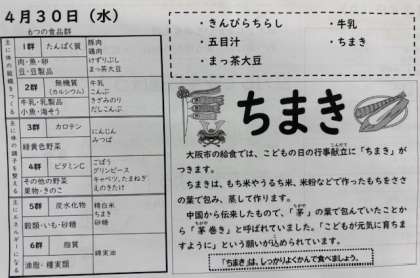 4月30日（水）
6つの食品群
主に体の組織をつくる
1群 たんぱく質
肉・魚・卵
豆・豆製品
豚肉
鶏肉
けずりぶし
まっ茶大豆
2群 無機質
(カルシウム)
牛乳・乳製品
小魚・海そう
牛乳
こんぶ
きざみのり
だしこんぶ
主に体の調子を整える
3群 カロテン
緑黄色野菜
にんじん
みつば
4群 ビタミンC
その他の野菜
果物・きのこ
ごぼう
グリンピース
キャベツ, たまねぎ
えのきたけ
主にエネルギーになる
5群 炭水化物
穀類・いも・砂糖
精白米
ちまき
砂糖
6群 脂質
油脂・種実類
綿実油
・きんぴらちらし
・五目汁
・まっ茶大豆
・牛乳
・ちまき
ちまき
大阪市の給食では、こどもの日の行事献立に「ちまき」が
こんだて
つきます。
ちまきは、もち米やうるち米、米粉などで作ったもちをささ
の葉で包み、蒸して作ります。
中国から伝来したもので、「茅」の葉で包んでいたことから
ちがや
「茅巻き」と呼ばれていました。「こどもが元気に育ちま
すように」という願いが込められています。
「ちまき」は、しっかりよくかんで食べましょう。